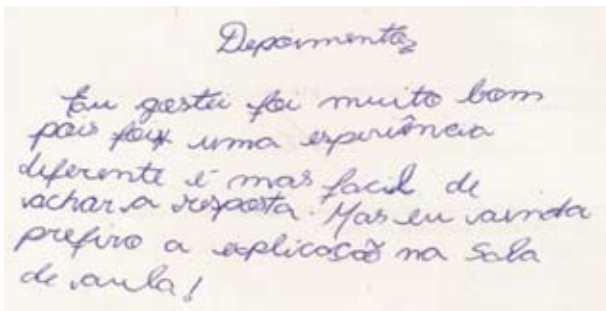 Depoimento
Eu gostei foi muito bom
pois foi uma experiência
diferente é mas facil de
achar a resposta. Mas eu ainda
prefiro a explicação na sala
de aula!